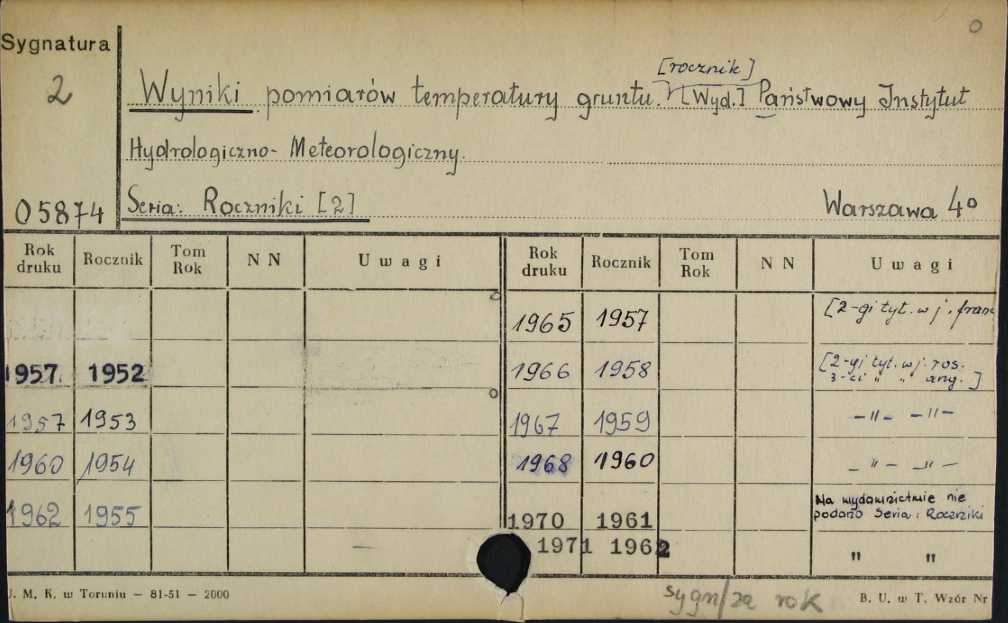 Sygnatura
2
[rocznik]
Wyniki pomiarów temperatury gruntu. [Wyd.] Państwowy Instytut
Hydrologiczno-Meteorologiczny.
05874 Seria: Roczniki [2] Warszawa 4°
Rok druku Rocznik Tom Rok NN Uwagi Rok druku Rocznik Tom Rok NN Uwagi
1965 1957 [2-gi tyt. w j. fran
1957 1952 1966 1958 [2-gi tyt. w j. ros.
3-ci " " ang.]
1957 1953 1967 1959 -"- -"-
1960 1954 1968 1960 -"- -"-
1962 1955 1970 1961 Na wydawnictwie nie
podano Seria: Roczniki
1971 1962 " "
J. M. K. w Toruniu — 81-51 — 2000 sygn/za rok B. U. w T. Wzór Nr